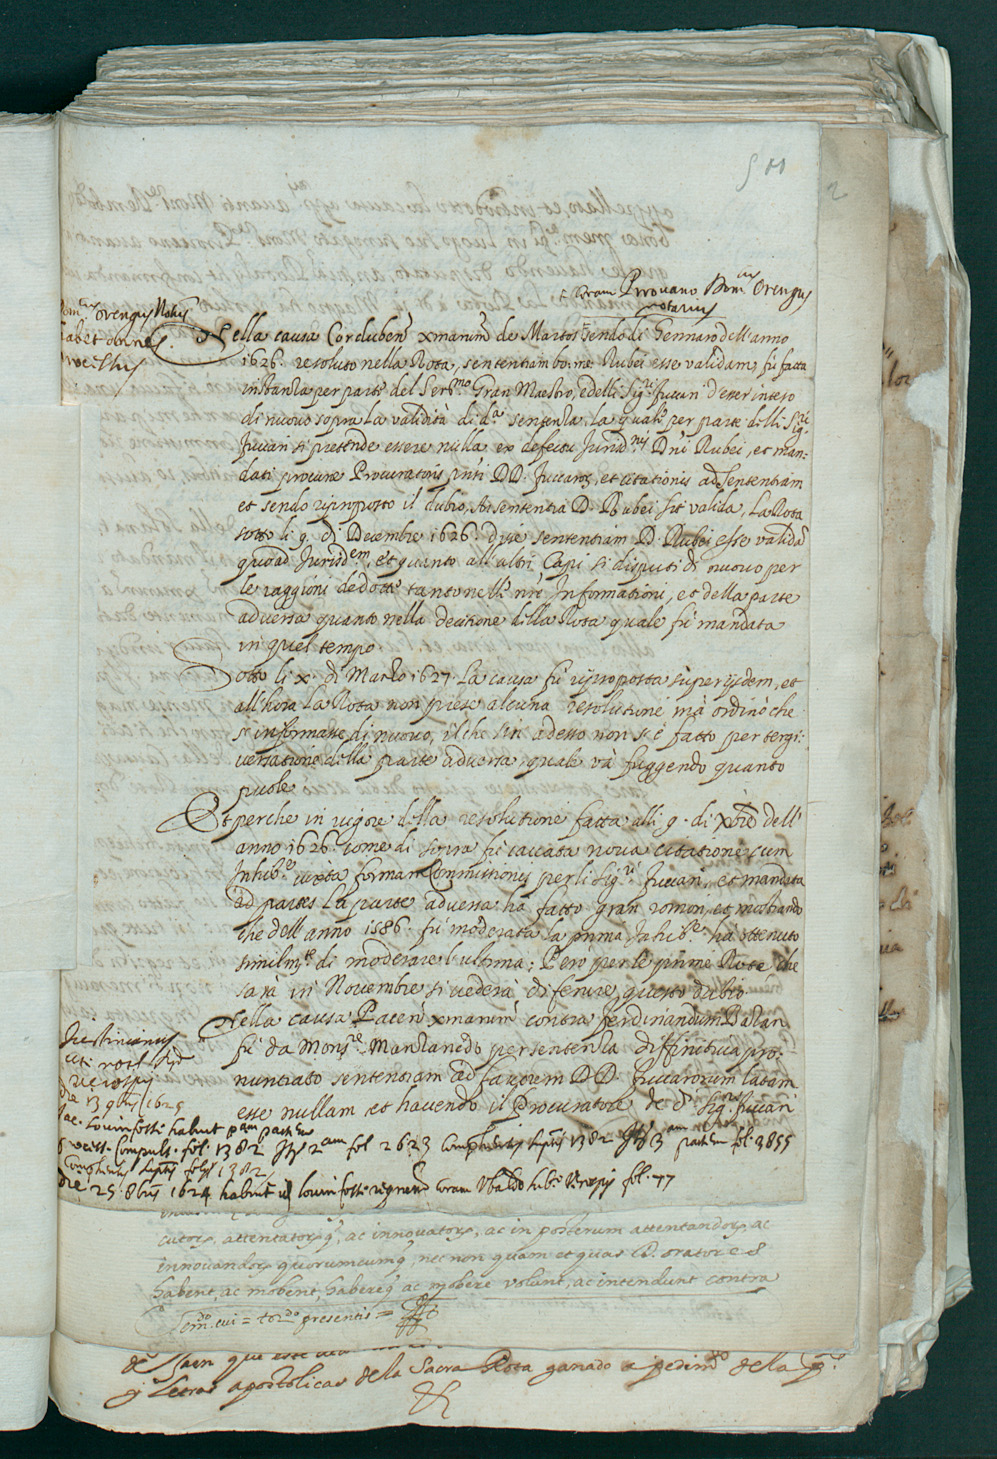 511
2
coram Provano Dom.us Orengus
notarius
Dom.us Orengus Notus
habet omnes
Nella causa Cordubeñ xmarum de Martos sendo di Gennaro dell anno
1626. resoluto nella Rota, sententiam bo: me: Rubei esse validam, fù fatta
instanza per parte del Ser.mo Gran Maestro, e delli Sig.ri Fuccari d'esser inteso
di nuovo sopra La validità di d.a sentenza. La quale per parte delli Sig.ri
Fuccari si pretende essere nulla ex defectu Jurisd.nis Dñi Rubei, et man=
dati procuræ Procuratoris pnti DD. Fuccaroȝ, et citationis ad sententiam
et sendo riproposto il dubio, An sententia D. Rubei sit valida, La Rota
sotto li 9. di Decembre 1626. dixit sententiam D. Rubei esse validā
quoad Jurisd.em, et quanto all'altri Capi si disputi di nuovo per
le raggioni dedotte tanto nelle nrẽ Informationi, et della parte
adversa quanto nella decisione della Rota quale fù mandata
in quel tempo
Sotto li x. di Marzo 1627. La causa fù riproposta super ijsdem, et
all'hora La Rota non prese alcuna resolutione mà ordinò che
s'informasse di nuovo, il che sin adesso non si è fatto per tergi:
versatione della parte adversa quale và fuggendo quanto
puole
Et perche in vigore della resolutione fatta alli 9. di Xbrẽ dell'
anno 1626. come di sopra fù cavata nova citatione cum
Inhib.e iuxta formam Commissionis per li Sig.ri Fuccari, et mandata
ad partes La parte adversa hà fatto gran romori, et mostrando
che dell'anno 1586. fù moderata la prima Inhib.e hà ottenuto
similm.te di moderare l'ultima; Però per le prime Rote che
sarà in Novembre si vederà difenire questo dubio.
Nella causa Pateñ xmarum contra Ferdinandum Balan
fù da Mons.re Manzanedo per sentenza diffinitiva pro:
nuntiato sententiam ad favorem DD. Fuccarorum latam
esse nullam et havendo il Procuratore de d. Sig.ri Fuccari
Justinianus
die 13 9bris 1625
Jac. Louinfosse habuit p.am partem
compuls. fol. 1382 2.am fol 2623 1382 3.am partem fol. 3855
1382
die 25. 8bris 1624 habuit Louinfosse coram Ubaldo fol. 77
cutorȝ, attentatorȝ q, ac innovatorȝ, ac in posterum attentandorȝ, ac
innovandorȝ quorumcumq, nec non quam et quas D. orator
habent, ac mobent, habereq ac mobere volunt, ac intendunt contra
presentis =
de Jaen que
y Letras apostolicas de la Sacra Rota ganado a pedim.to de la